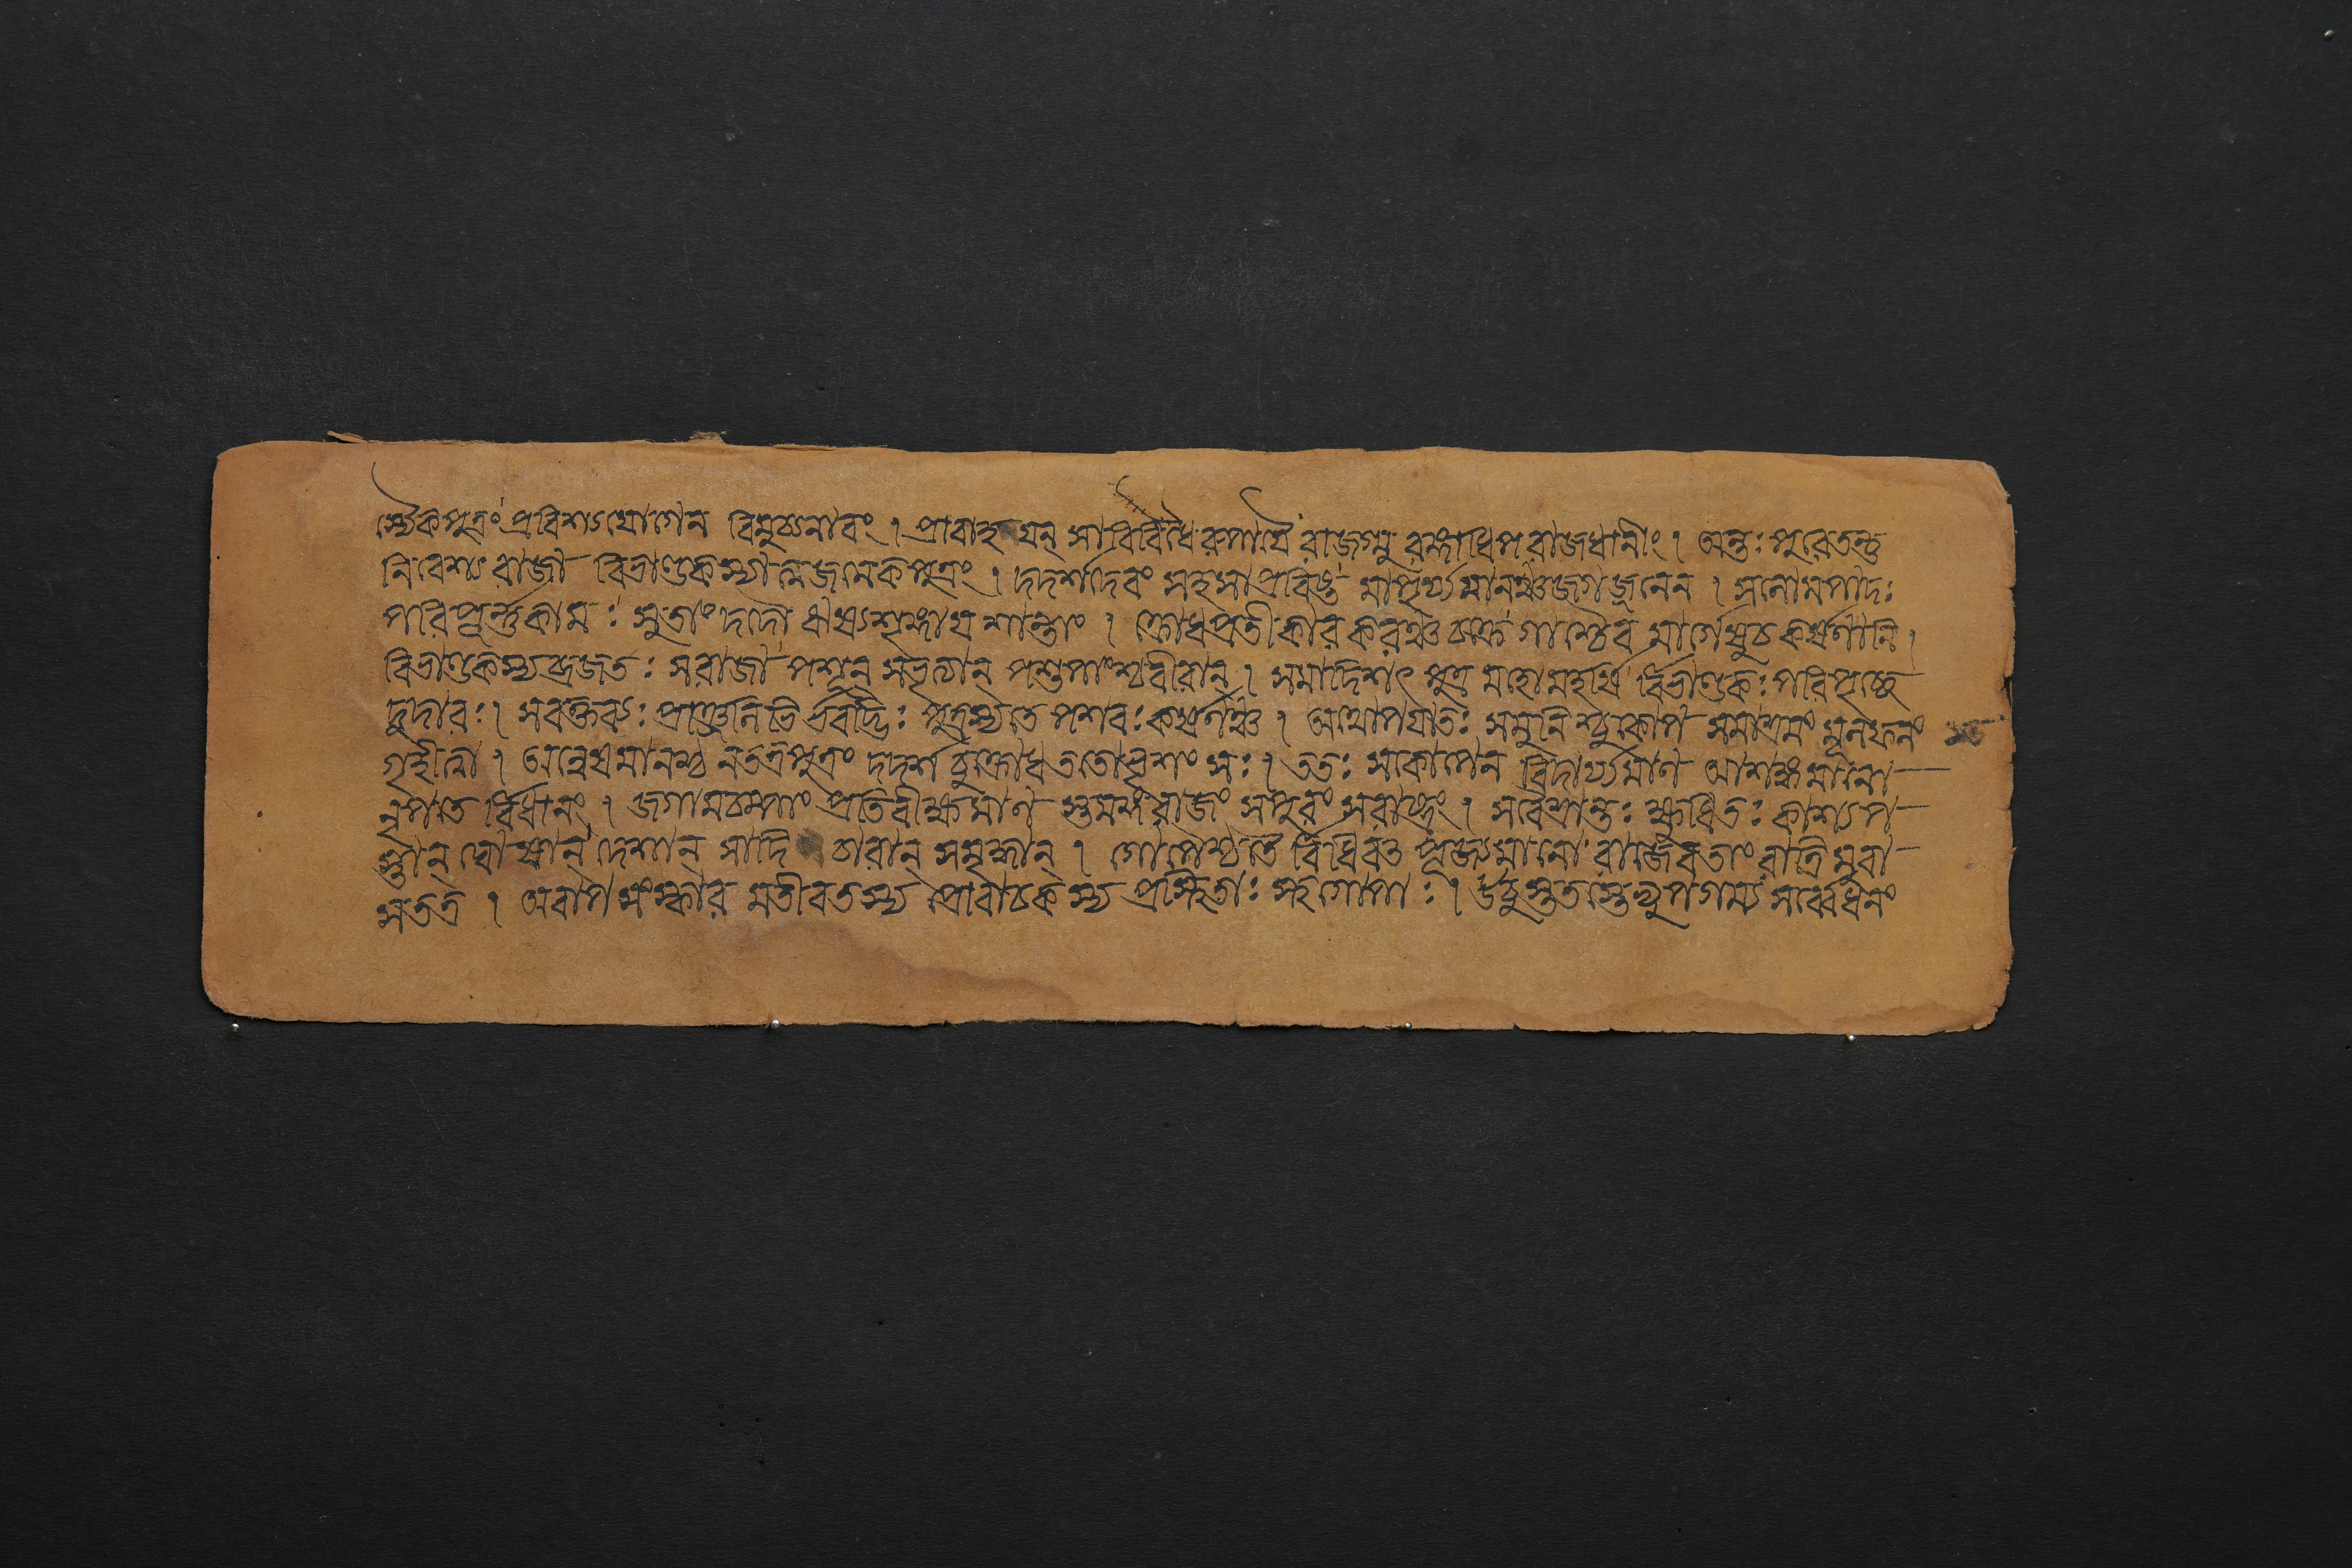 স্যৈকপুত্রং প্রবিশ্যযোগেন বিমুচ্যনাবং । প্রাবাহযন্ সাবিবিধৈরুপাযৈরাজগ্মু রঙ্গাধিপরাজধানীং । অন্তঃপুরেতন্তু
নিবেশ্য রাজা বিভাণ্ডকস্যাত্মজমেকপুত্রং । দদর্শদেবং সহসাপ্রবিষ্ট মাপূর্য্যমানঞ্চজগজ্জলেন । সলোমপাদঃ
পরিপূর্ণকামঃ সুতাং দদৌ ঋষ্যশৃঙ্গায শান্তাং । ক্রোধপ্রতীকারকরঞ্চচক্রে গাশ্চৈব মার্গেষুচকর্ষণানি ।
বিভাণ্ডকস্যাব্রজতঃ সরাজা পশূন্ পশুপাংশ্চবীরান্ । সমাদিশৎ পুত্র মহর্ষি র্বিভাণ্ডকঃ পরিপৃচ্ছে
সবক্তব্যঃ প্রাঞ্জলিভি র্ভবদ্ভিঃ পুত্রস্যতে পশবঃ কর্ষণঞ্চ । অথোপাযাতঃ সমুনিশ্চুকোপ সমাশ্রমং মূলফলং
গৃহীত্বা । অন্বেষমানশ্চ নতত্রপুত্রং দদর্শ চুক্রোধ ততোভৃশং সঃ । ততঃ সকোপেন বিদীর্য্যমাণ আশঙ্কমানো
নৃপতে র্বিধানং । জগামচম্পাং প্রতিধক্ষ্যমাণ স্তমঙ্গরাজং সপুরং সরাষ্ট্রং । সবৈশ্রান্তঃ ক্ষুধিতঃ কাশ্যপ
স্তান্ ঘোষান্ দেশান্ সাদি চারান্ সমৃদ্ধান্ । গোপৈশ্চতৈ র্বিধিবৎ পূজ্যমানো রাজেবতাং রাত্রিমুবা
সতত্র । অবাপ সৎকার মতীবতস্য প্রোবাচকস্য প্রথিতাঃ স্থগোপাঃ । উচুস্ততস্তেভ্যুপগম্য সর্ব্বেধনং